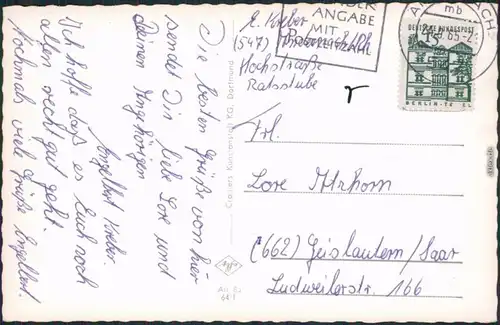 Die besten Grüße von hier
sendet Dir liebe Lore und
Deinen Angehörigen
Engelbert Kreber.
Ich hoffe daß es Euch noch
allen recht gut geht.
Nochmals viele Grüße Engelbert.
E. Kreber
(547) Andernach/Rh
Hochstraße
Ratsstube
ANGABE
MIT
Postleitzahl
mb
DEUTSCHE BUNDESPOST
15
BERLIN-TE EL
Frl.
Lore Ahrhorn
(662) Geislautern/Saar
Ludweilerstr. 166
Cramers Kunstanstalt KG. Dortmund